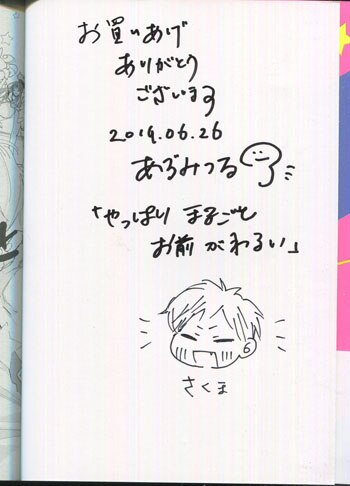 お買いあげ
ありがとう
ございます
2019.06.26
あぶみつる
「やっぱりまるごと
お前がわるい」
さくま